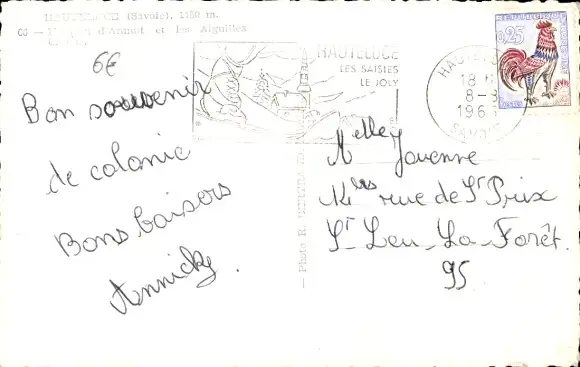 HAUTELUCE (Savoie), 1150 m.
et les Aiguilles
6€
Bon souvenir
de colonie
Bons baisers
Annick
HAUTELUCE
LES SAISIES
LE JOLY
HAUTELUCE
18 H
8-8
196
SAVOIE
0,25
Photo R.
Melle Jouvenne
rue de St Prix
St Leu-La-Forêt
95